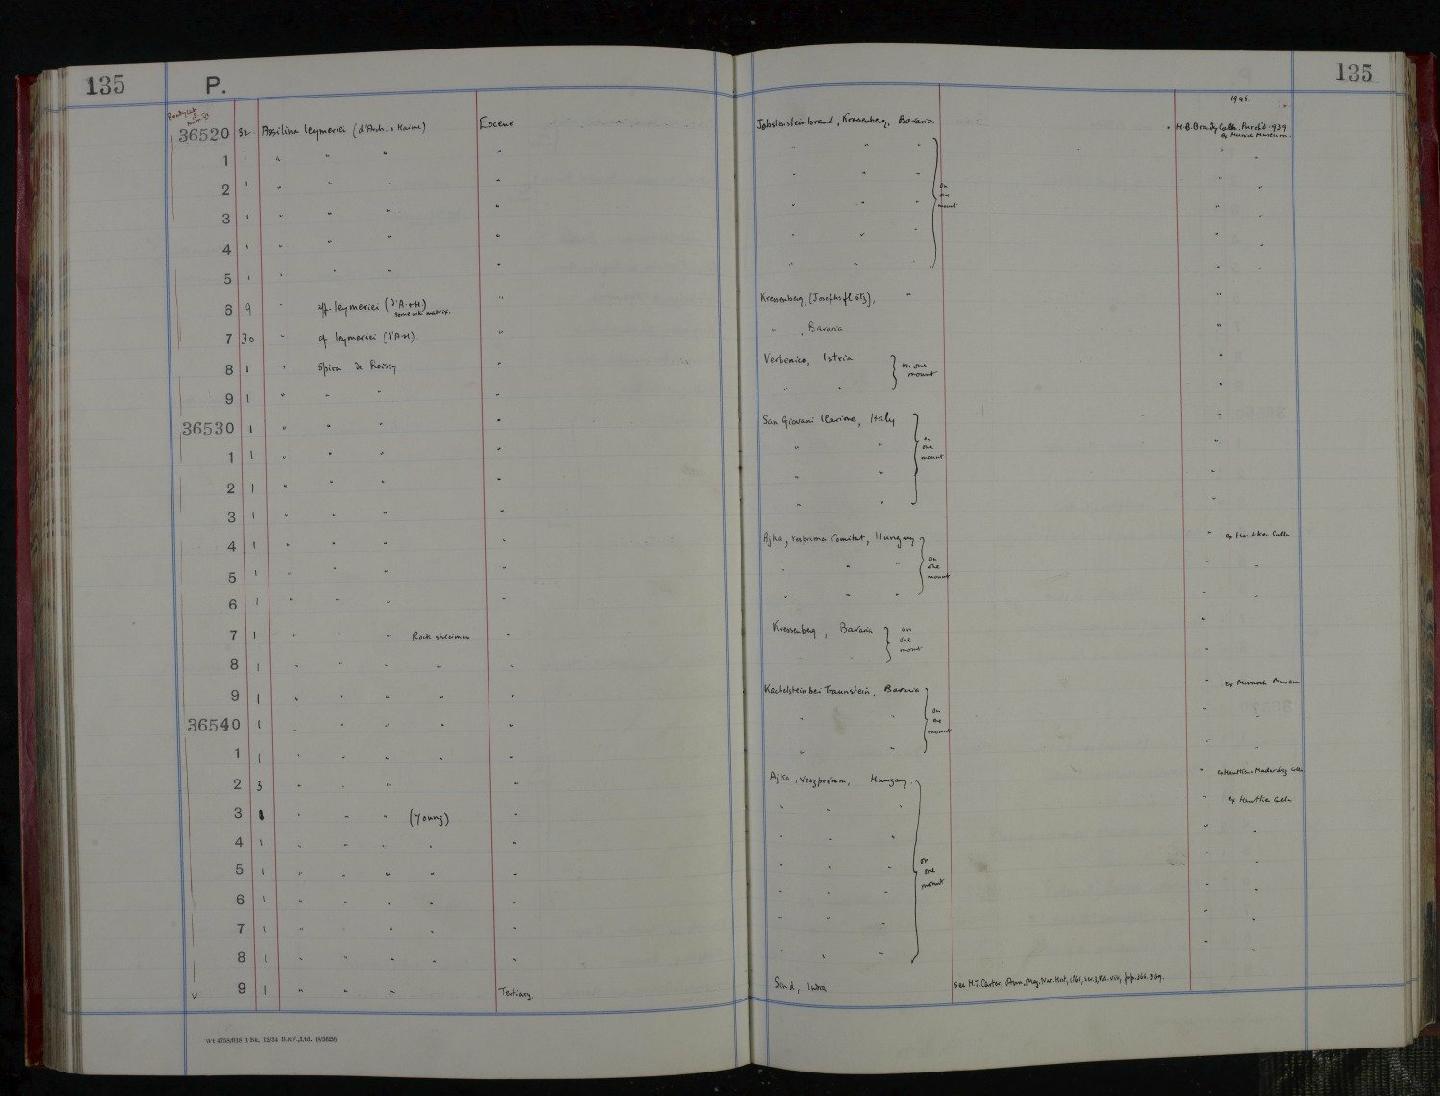 135 P. 135
1945.
36520 32 Assilina leymeriei (d'Arch. & Haime) Eocene Kressenberg, Bavaria H.B. Brady Colln. Purch'd 1939
1 " " " " " " "
2 1 " " " " " " "
3 1 " " " " " " " on one mount
4 1 " " " " " " "
5 1 " " " " " " "
6 9 " aff. leymeriei (d'A.+H.) " Kressenberg, [Josephsflötz], " "
some with matrix.
7 30 " cf leymeriei (d'A+H) " " , Bavaria "
8 1 " spira de Roissy " Verbenico, Istria } on one mount "
9 1 " " " " " " "
36530 1 " " " " San Giovani Ilarione, Italy "
1 1 " " " " " " } on one mount "
2 1 " " " " " " "
3 1 " " " " " " "
4 1 " " " " Ajka, Comitat, Hungary " Colln
5 1 " " " " " " " } on one mount " "
6 1 " " " " " " " " "
7 1 " " Rock specimen " Kressenberg, Bavaria } on one mount "
8 1 " " " " " " " "
9 1 " " " " " bei Traunstein, Bavaria " ex Museum
36540 1 " " " " " " } on one mount " "
1 1 " " " " " " " " "
2 3 " " " " Ajka, Veszprém, Hungary. " ex Hantken Colln
3 1 " " " (Young) " " " " " ex Hantken Colln
4 1 " " " " " " " " "
5 1 " " " " " " " " } on one mount " "
6 1 " " " " " " " " " "
7 1 " " " " " " " " "
8 1 " " " " " " " " "
9 1 " " " Tertiary. Sind, India see H.J. Carter. Ann. Mag. Nat. Hist, 1861, ser. 3, Vol. viii, pp. 366.